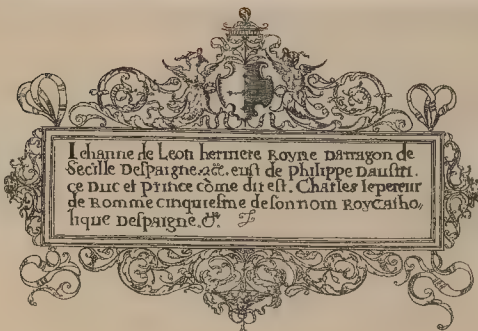 Iehanne de Leon heritiere Royne Darragon de
Secille Despaigne. ⁊cē. eust de Philippe Daustri.
ce Duc et Prince cōme dit est. Charles lepereur
de Romme cinquiesme de son nom Roy Catho„
lique Despaigne. &ᶜ.